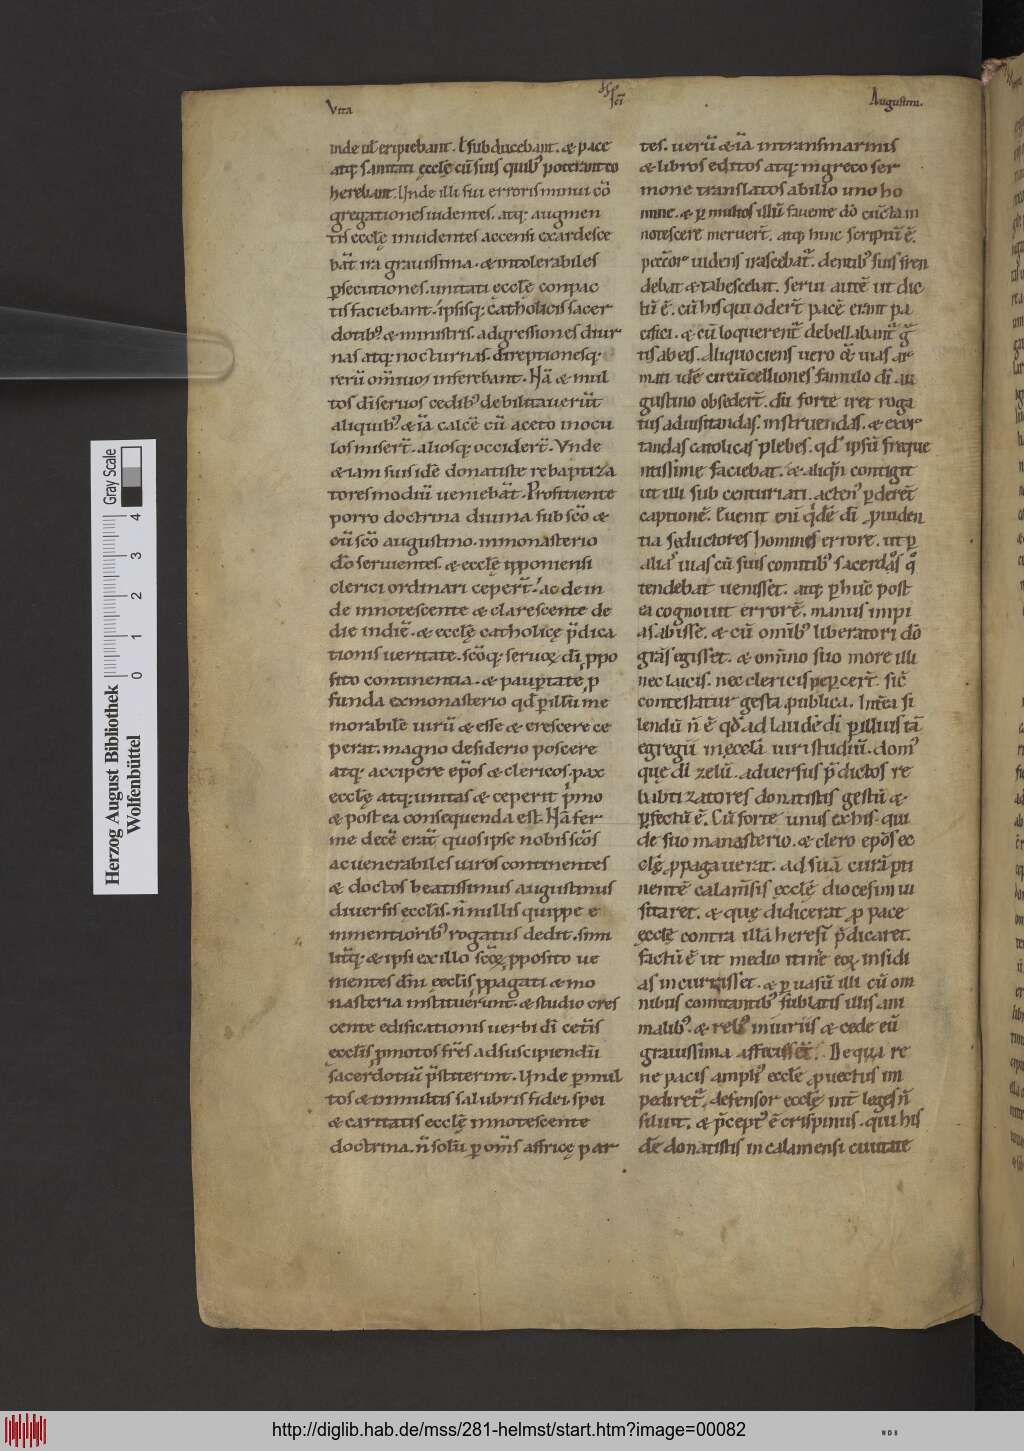 Vita
sci
Augustini.
inde ul' eripiebant. l' subducebant. & pace
atq; sanitati ęcclę cū suis quib; poterant co
herebant. Unde illi sui erroris minui cō
gregationes uidentes. atq; augmen
tis ecclę inuidentes accensi exardesce
bat̄ ira grauissima. & intolerabiles
ꝑsecutiones. unitati ęcclę conpac
tis faciebant. ipsisq; catholicis sacer
dotib; & ministris. adgressiones diur
nas atq; nocturnas. direptionesq;
rerū om̄niuꝫ inferebant. Nā & mul
tos dī seruos cedib; debilitauerūt
aliquib; & iā calcē cū aceto in ocu
los miser̄t. aliosq; occider̄t. Vnde
& iam suis idē donatistę rebaptiza
tores modiū ueniebāt. Profitiente
porro doctrina diuina sub scō &
cū scō augustino. in monasterio
dō seruientes. & ecclę ypponiensi
clerici ordinari ceper̄t. ac dein
de innotescente & clarescente de
die in diē. & ecclę catholicę p̄dica
tionis ueritate. scōq; seruoꝝ dī ꝓpo
sito continentia. & paupertate ꝓ
funda ex monasterio qd̄ ꝑ illum me
morabilē uirū & esse & crescere ce
perat. magno desiderio poscere
atq; accipere ep̄os & clericos. pax
ecclę atq; unitas & ceperit p̄mo
& postea consequenda est. Nā fer
me decē erat̄ quos ipse noui scōs
ac uenerabiles uiros continentes
& doctos beatissimus augustinus
diuersis ęcclis. n̄ nullis quippe e
minentiorib; rogatus dedit. simi
lit̄q; & ipsi ex illo scōꝝ ꝓposito ue
nientes dn̄i ęcclis ꝓpagati & mo
nasteria instituerunt. & studio cres
cente edificationis uerbi dī cet̄is
ecclis ꝓmotos fr̄es ad suscipiendū
sacerdotiū p̄stiterint. Unde ꝑ mul
tos & in multis salubris fidei. spei
& caritatis ecclę innotescente
doctrina. n̄ solū ꝑ om̄s affricę par
tes. uerū & iā in transmarinis
& libros editos atq; in greco ser
mone translatos ab illo uno ho
mine. & ꝑ multos illū fauente dō cūcta in
notescere meruer̄t. atq; hinc scriptū ē.
peccator uidens irascebat̄. dentib; suis fren
debat & tabescebat. serui autē ut dic
tū ē. cū his qui oder̄t pacē erant pa
cifici. & cū loquerent̄ debellabant̄ ḡ
tis ab eis. Aliquociens uero & uias ar
mati idē circūcelliones famulo dī au
gustino obseder̄t. dū forte iret roga
tus ad uisitandas. instruendas. & exor
tandas catolicas plebes. qd̄ ipsū freque
ntissime faciebat. & aliqn̄ contigit
ut illi sub centuriati. acten; ꝑderēt
captionē. Euenit eni qdē dī ꝓuiden
tia seductores hominis errore. ut ꝑ
alia; uias cū suis comitib; sacerdos qͦ
tendebat uenisset. atq; ꝑ hūc post
ea cognouit errorē. manus impi
as abissē. & cū omīb; liberatori dō
grās egisset. & om̄no suo more illi
nec laicis. nec clericis peꝑcer̄t. sic̄
contestatur gesta publica. Inter̄a si
lendū n̄ ē qd̄ ad laudē dī ꝑ illius tā
egregiū in ęcclā uiri studiū. dom;
quę dī zelū. aduersus p̄dictos re
babtizatores donatistis gestū &
ꝑfectū ē. Cū forte unus ex his. qui
de suo monasterio. & clero ep̄os ec
clę ꝓpagauerat. ad suā curā ꝑti
nentē calam̄sis ęcclę diocesim ui
sitaret. & quę didicerat ꝓ pace
ęcclę contra illā heresī p̄dicaret.
factū ē ut medio itinē eoꝝ insidi
as incurrisset. & ꝑ uasū illi cū om
nibus comitantib; sublatis illis ani
malib;. & reb; iniuriis & cede eū
grauissima affecisset. De qua re
ne pacis ampli; ecclē ꝓuectus im
pediret̄. defensor ecclę int̄ leges n̄
siluit. & p̄cept; ē crispinus. qui his
dē donatistis in calamensi ciuitate
Herzog August Bibliothek
Wolfenbüttel
Gray Scale
0 1 2 3 4
http://diglib.hab.de/mss/281-helmst/start.htm?image=00082
WDB